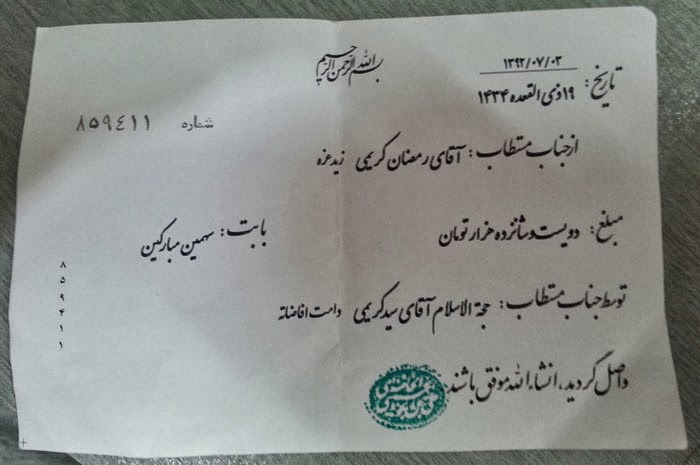 بسم الله الرحمن الرحیم
تاریخ: ۱۳۹۲/۰۷/۰۳
۱۹ ذی القعده ۱۴۳۴
شماره ۸۵۹۴۱۱
از جناب مستطاب: آقای رمضان کریمی زید عزه
مبلغ: دویست و شانزده هزار تومان بابت: سهمین مبارکین
توسط جناب مستطاب: حجة الاسلام آقای سید کریمی دامت افاضاته
واصل گردید، انشاء الله موفق باشند.
۸
۵
۹
۴
۱
۱